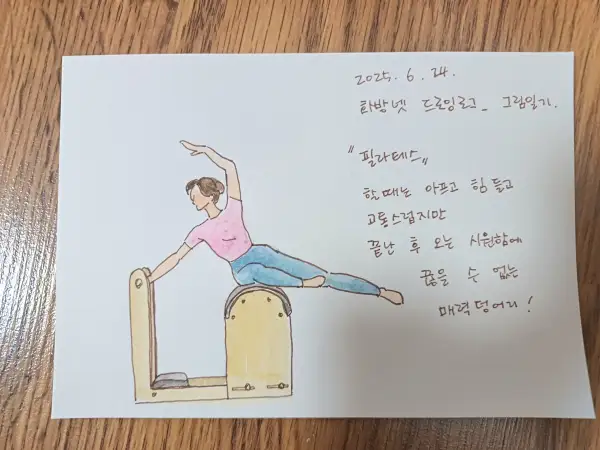 2025. 6. 24.
화방넷 드로잉로그_ 그림일기.
"필라테스"
할때는 아프고 힘들고
고통스럽지만
끝난 후 오는 시원함에
끊을 수 없는
매력덩어리!